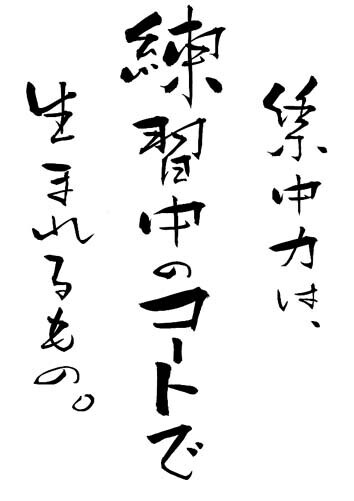 集中力は、
練習中のコートで
生まれるもの。